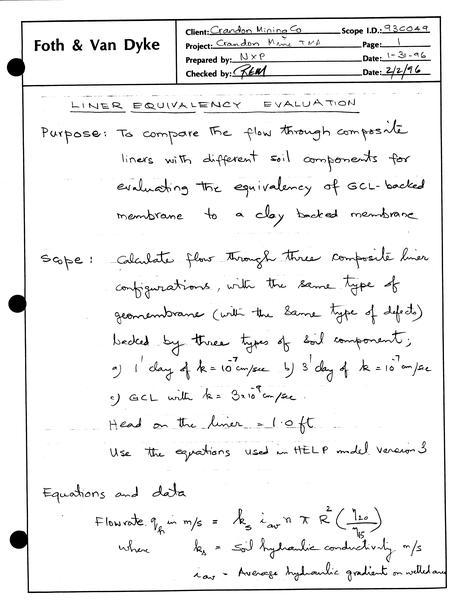 Foth & Van Dyke
Client: Crandon Mining Co Scope I.D.: 93C049
Project: Crandon Mine TMA Page: 1
Prepared by: NXP Date: 1-31-96
Checked by: Date: 2/2/96
LINER EQUIVALENCY EVALUATION
Purpose: To compare the flow through composite
liners with different soil components for
evaluating the equivalency of GCL-backed
membrane to a clay backed membrane
Scope: Calculate flow through three composite liner
configurations, with the same type of
geomembrane (with the same type of defects)
backed by three types of soil component;
a) 1' clay of k = 10⁻⁷ cm/sec b) 3' clay of k = 10⁻⁷ cm/sec
c) GCL with k = 3x10⁻⁹ cm/sec.
Head on the liner = 1.0 ft
Use the equations used in HELP model version 3
Equations and data
Flowrate q_h in m/s = k_s i_av n π R² (η_20/η_15)
where k_s = Soil hydraulic conductivity m/s
i_av = Average hydraulic gradient on wetted area